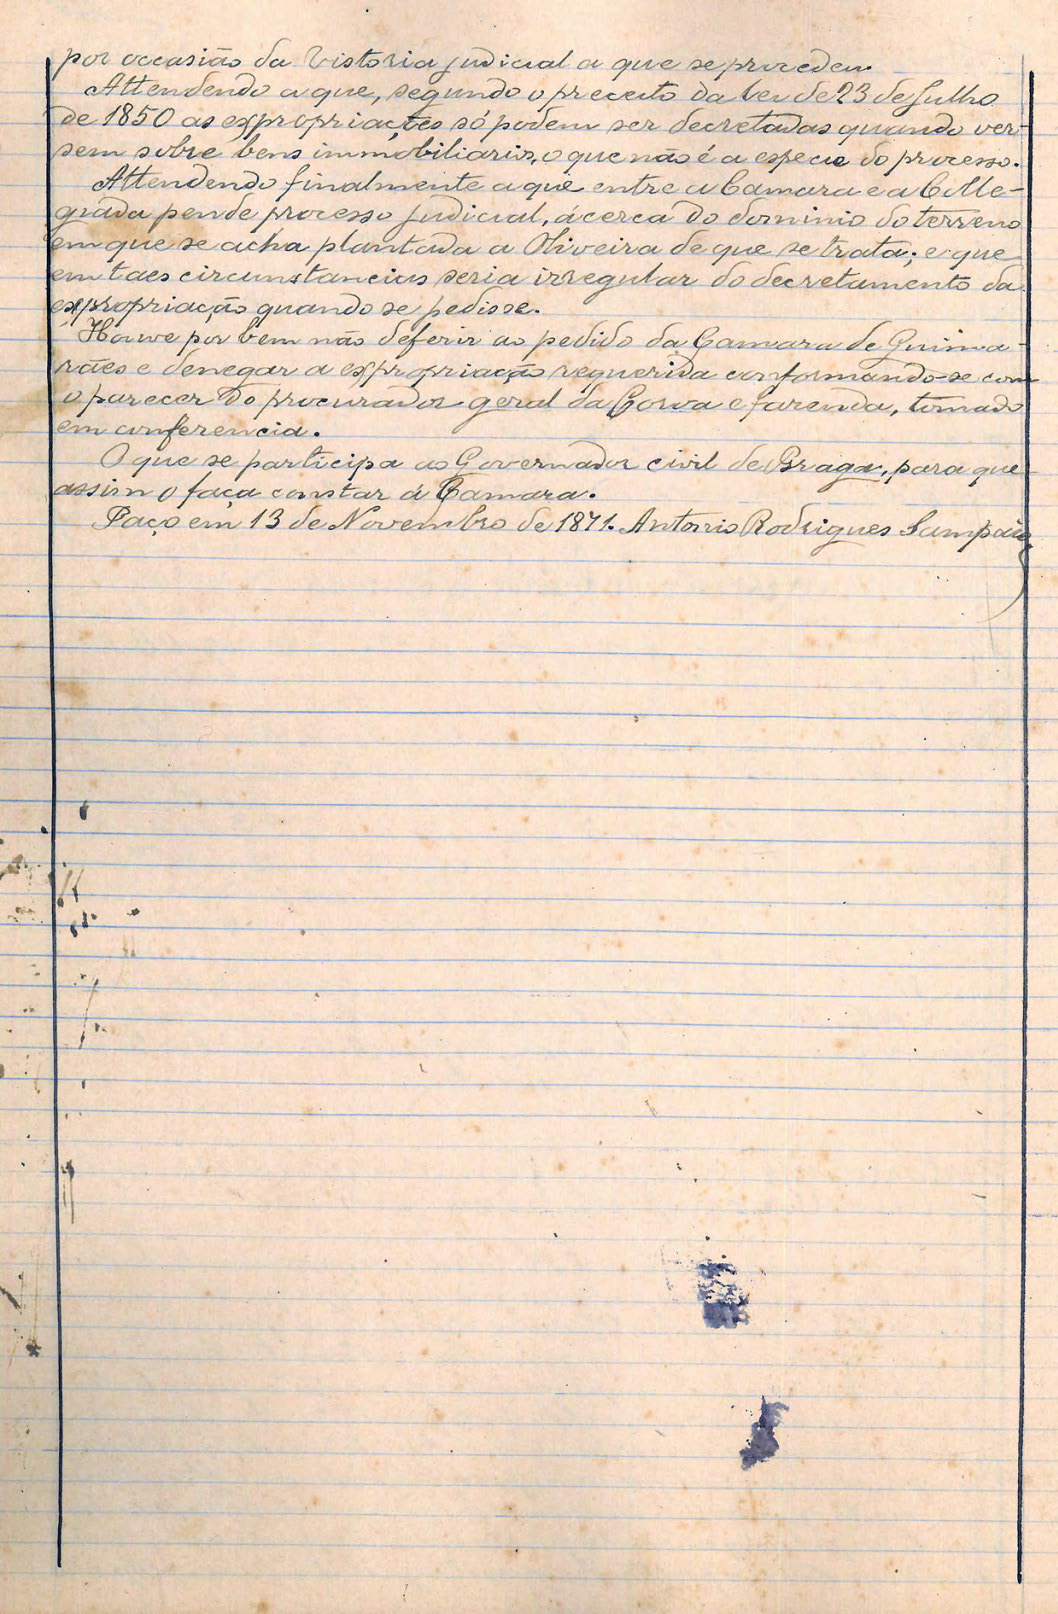 por occasião da vistoria judicial a que se procedeu.
Attendendo a que, segundo o preceito da lei de 23 de Julho
de 1850 as expropriações só podem ser decretadas quando ver-
sem sobre bens immobiliarios, o que não é a especie do processo.
Attendendo finalmente a que entre a Camara e a Colle-
giada pende processo judicial, ácerca do dominio do terreno
em que se acha plantada a Oliveira de que se trata; e que
em taes circunstancias seria irregular do decretamento da
expropriação quando se pedisse.
Houve por bem não deferir ao pedido da Camara de Guima-
rães e denegar a expropriação requerida conformando-se com
o parecer do procurador geral da Coroa e fazenda, tomado
em conferencia.
O que se participa ao Governador civil de Braga, para que
assim o faça constar á Camara.
Paço em 13 de Novembro de 1871. Antonio Rodrigues Sampaio